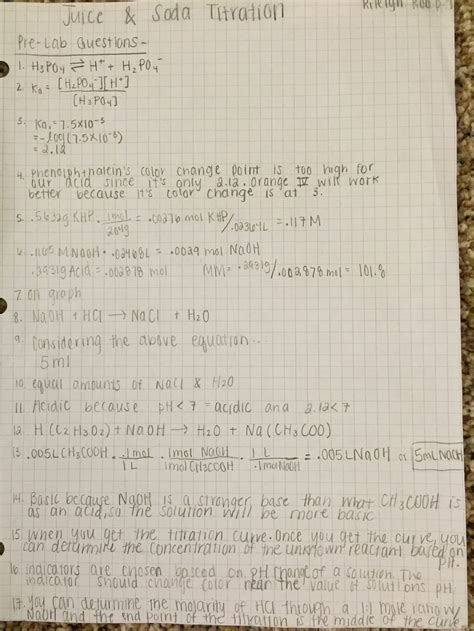 Juice & Soda Titration
Pre-Lab Questions -
1. H₃PO₄ ⇌ H⁺ + H₂PO₄⁻
2. Ka = [H₂PO₄⁻][H⁺]
[H₃PO₄]
3. Ka₁ = 7.5x10⁻³
= -log(7.5x10⁻³)
= 2.12
4. Phenolphthalein's color change point is too high for
our acid since it's only 2.12. Orange IV will work
better because its color change is at 3.
5. .5632g KHP . 1mol / 204g = .00276 mol KHP / .02364L = .117M
6. .1165 M NaOH . .02468L = .0029 mol NaOH
.2931g Acid = .002878 mol MM = .2931g/.002878 mol = 101.8
7. on graph
8. NaOH + HCl → NaCl + H₂O
9. Considering the above equation..
5ml
10. equal amounts of NaCl & H₂O
11. Acidic because pH<7 = acidic and 2.12<7
12. H(C₂H₃O₂) + NaOH → H₂O + Na(CH₃COO)
13. .005L CH₃COOH . .1mol / 1L . 1mol NaOH / 1mol CH₃COOH . 1L / .1mol NaOH = .005L NaOH or 5mL NaOH
14. Basic because NaOH is a stronger base than what CH₃COOH is
as an acid, so the solution will be more basic
15. When you get the titration curve. Once you get the curve, you
can determine the concentration of the unknown reactant based on
pH.
16. Indicators are chosen based on pH change of a solution. The
indicator should change color near the value of solutions pH
17. You can determine the molarity of HCl through a 1:1 mole ratio w/
NaOH and the end point of the titration is the middle of the curve